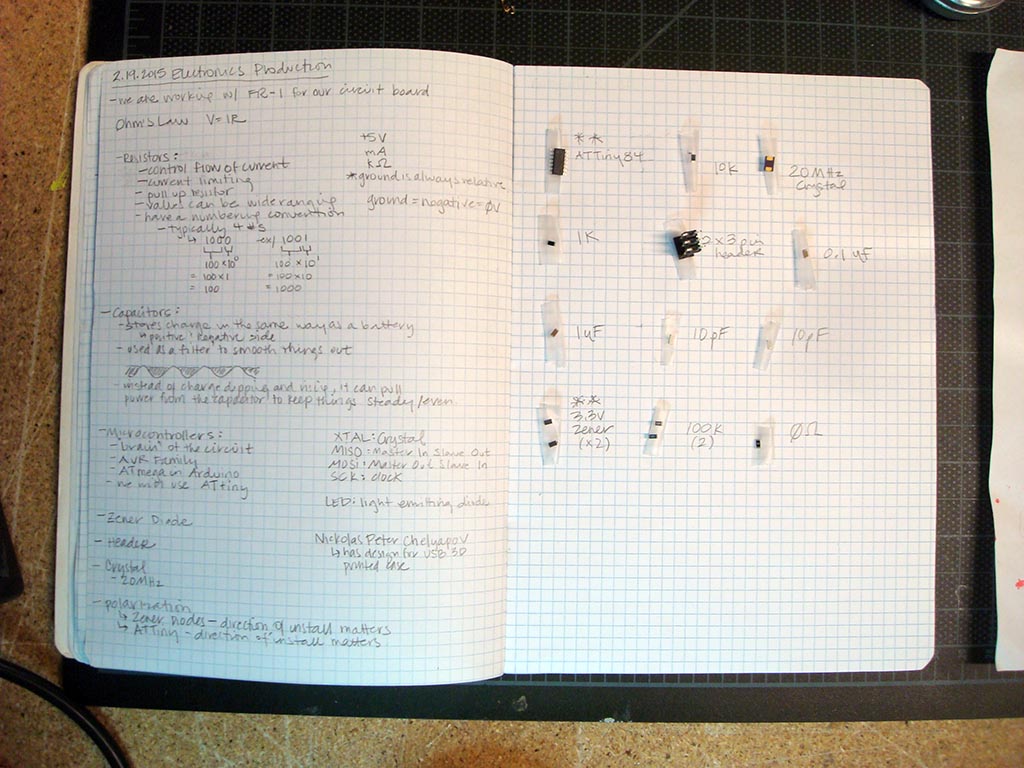 2.19.2015 Electronics Production
- we are working w/ FR-1 for our circuit board
Ohm's Law V=IR
+5V
mA
kΩ
*ground is always relative
ground = negative = 0V
- Resistors:
- control flow of current
- current limiting
- pull up resistor
- values can be wide ranging
- have a numbering convention
- typically 4 #s
↳ 1000
100 × 10⁰
= 100 × 1
= 100
ex/ 1001
100 × 10¹
= 100 × 10
= 1000
- Capacitors:
- stores charge in the same way as a battery
↳ positive & negative side
- used as a filter to smooth things out
- instead of charge dipping and rising, it can pull
power from the capacitor to keep things steady/even.
- Microcontrollers:
- brain of the circuit
- AVR Family
- ATmega in Arduino
- we will use ATtiny
XTAL: Crystal
MISO: Master In Slave Out
MOSI: Master Out Slave In
SCK: clock
LED: light emitting diode
- Zener Diode
- Header
- Crystal
- 20MHz
Nickolas Peter Chelyapov
↳ has design for USB 3D
printed case
- polarization
↳ Zener diodes - direction of install matters
↳ ATTiny - direction of install matters
**
ATTiny84
10K
20MHz
Crystal
1K
2x3 pin
header
0.1 uF
1uF
10pF
10pF
**
3.3V
Zener
(x2)
100K
(2)
0Ω